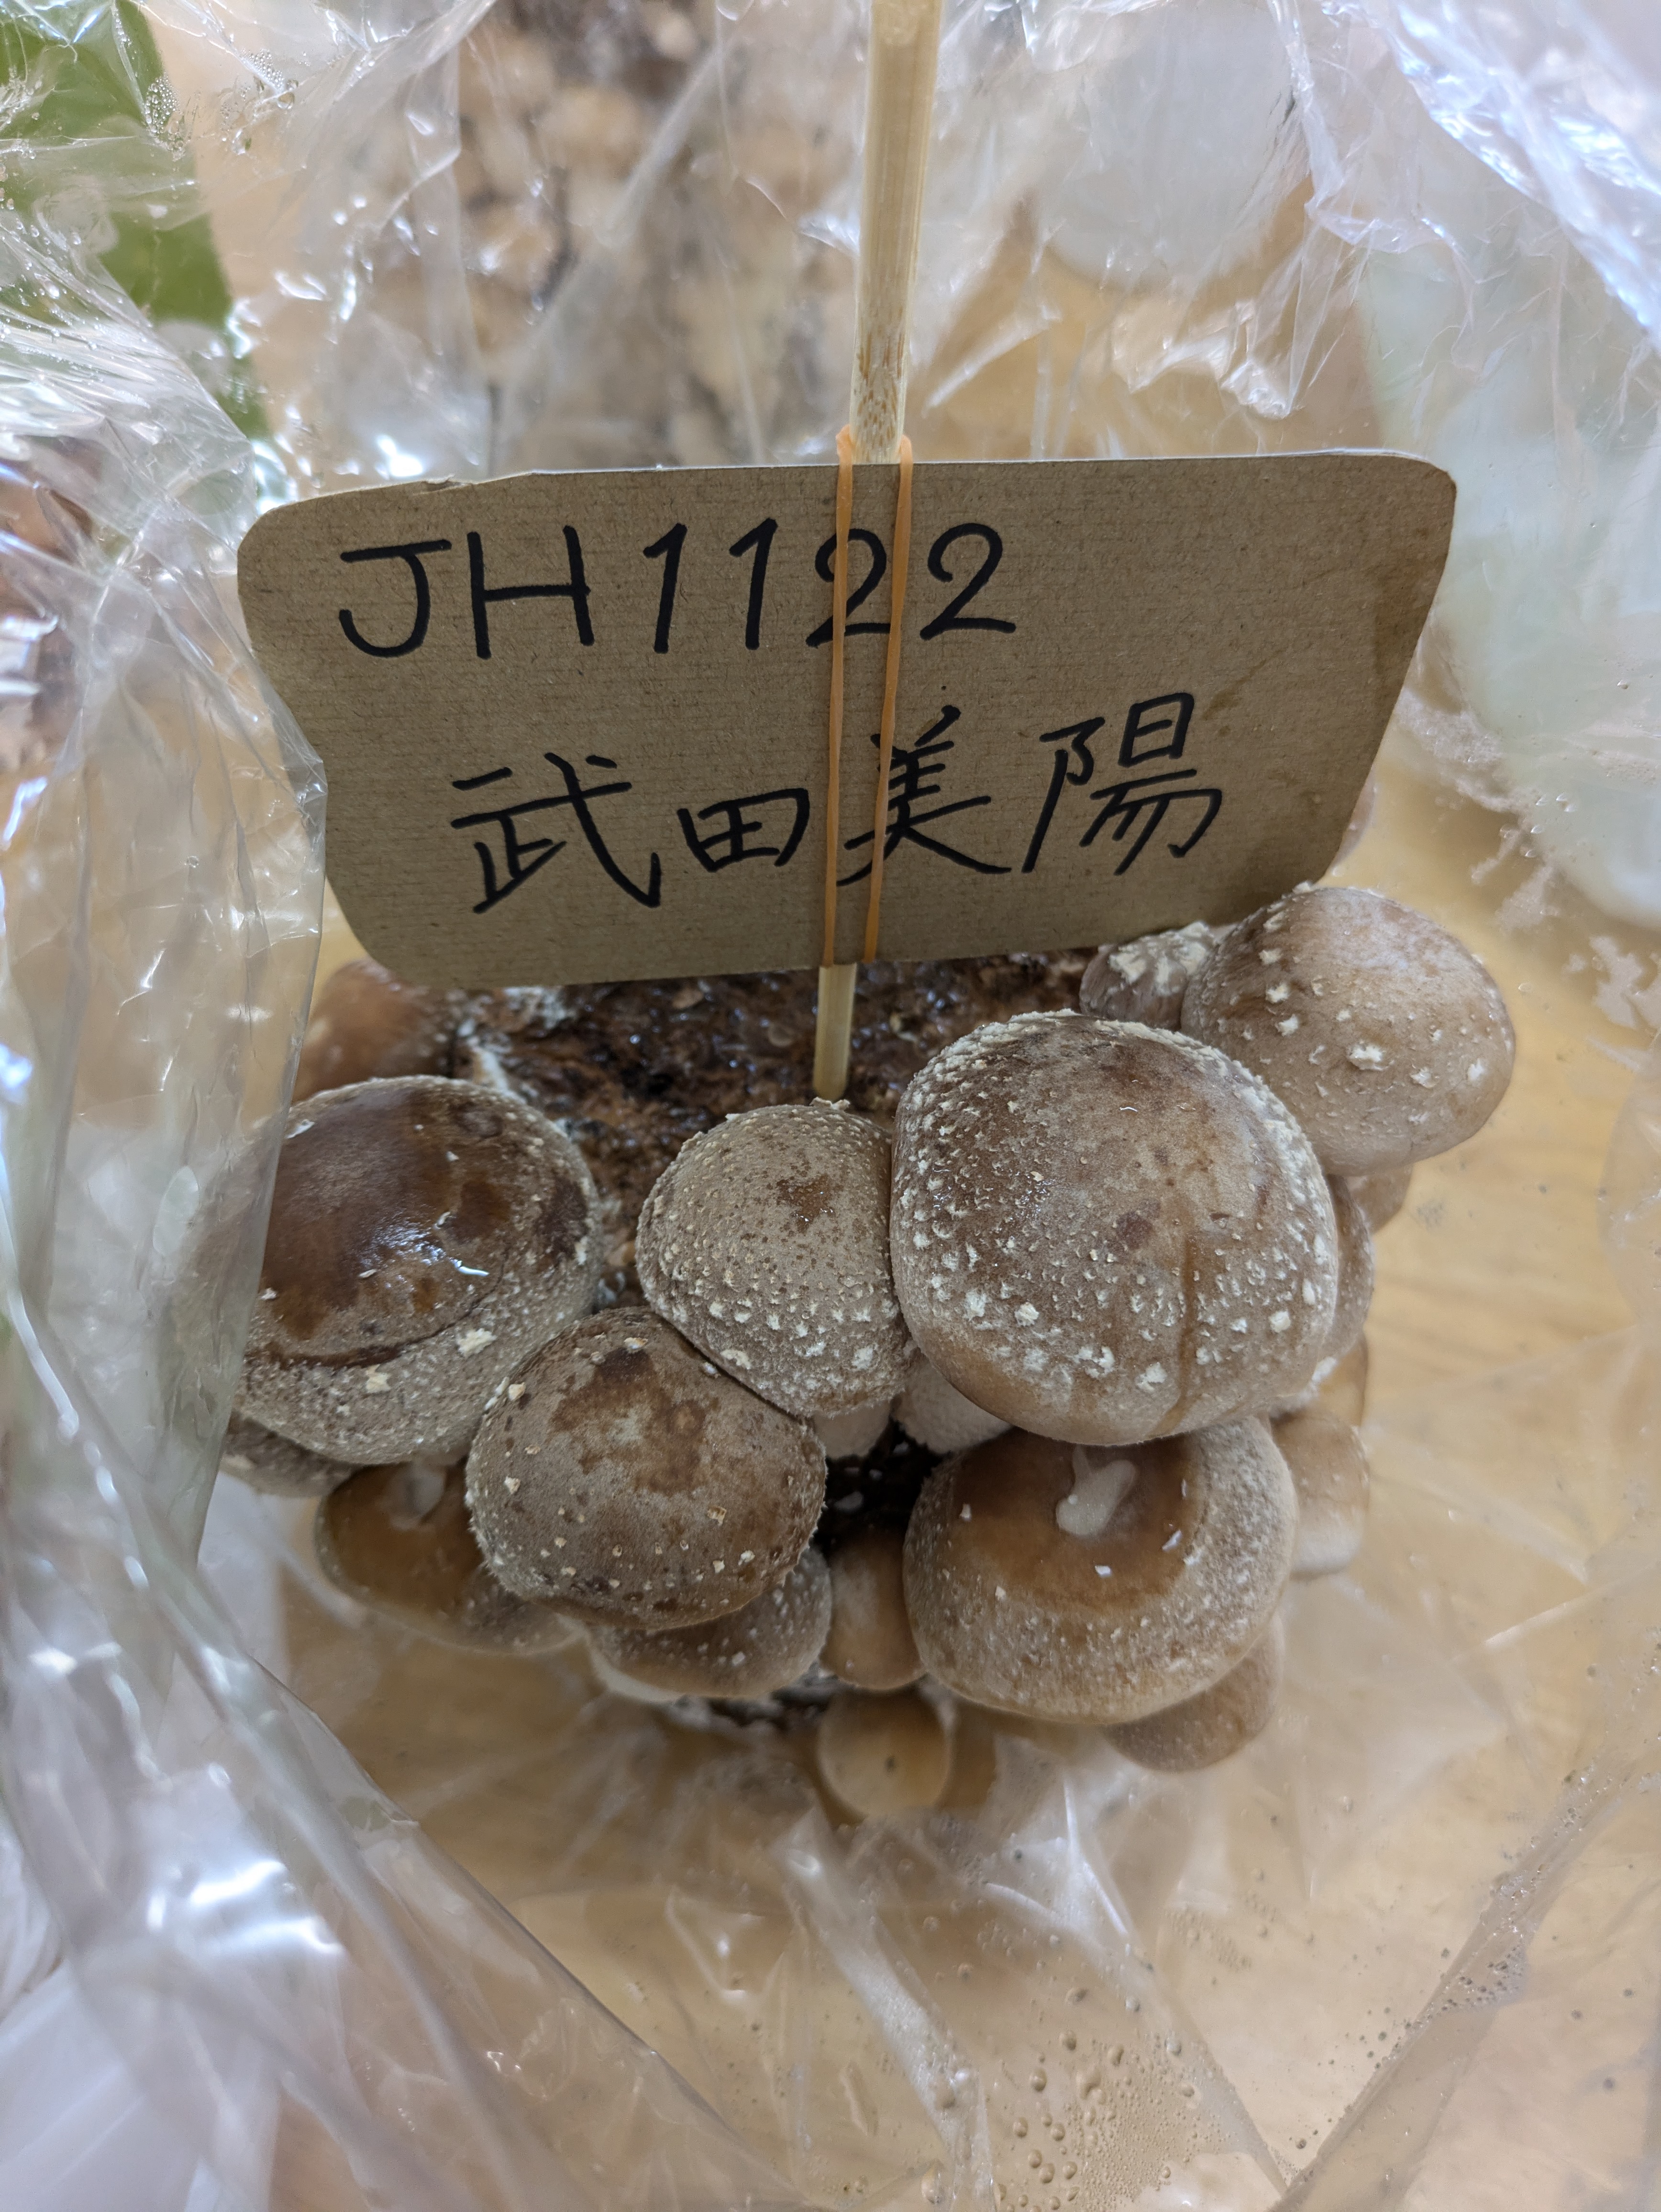 JH1122
武田美陽